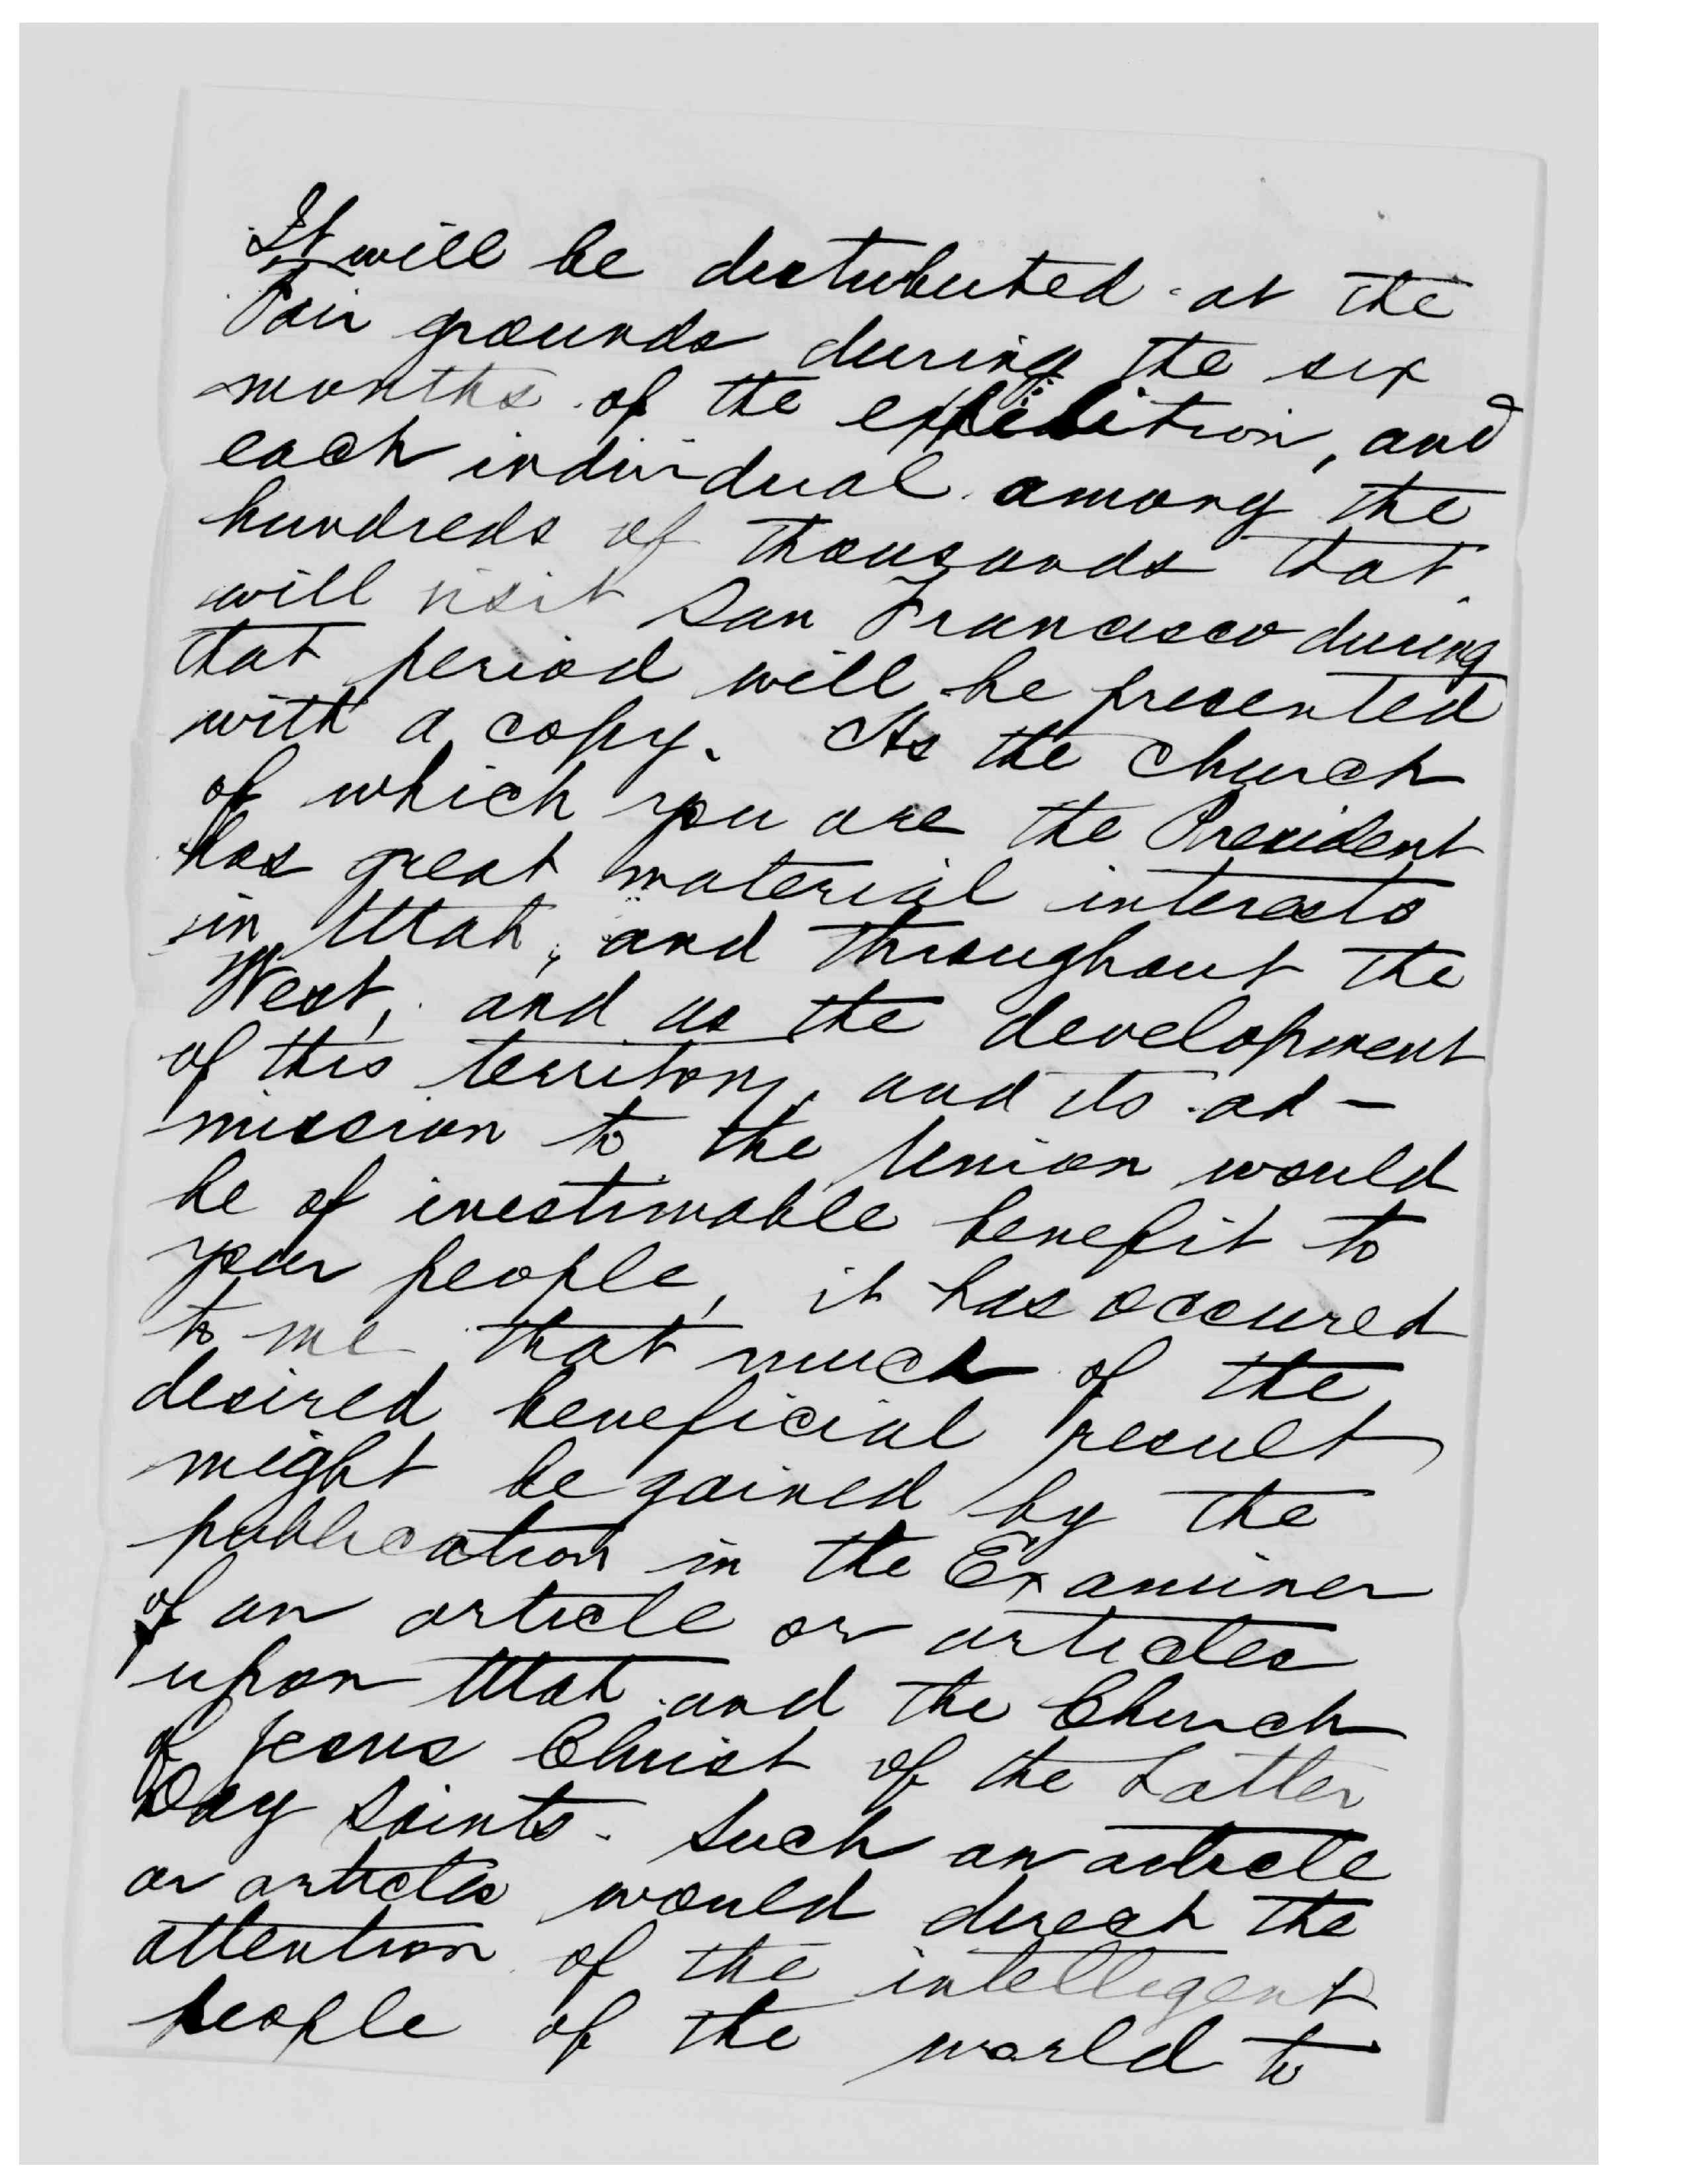 It will be distributed at the
Fair grounds during the six
months of the exhibition, and
each individual among the
hundreds of thousands that
will visit San Francisco during
that period will be presented
with a copy. As the church
of which you are the President
has great material interests
in Utah, and throughout the
West, and as the development
of this territory, and its ad-
mission to the Union would
be of inestimable benefit to
your people, it has occured
to me that much of the
desired beneficial result
might be gained by the
publication in the Examiner
of an article or articles
upon Utah and the Church
of Jesus Christ of the Latter
Day Saints. Such an article
or articles would direct the
attention of the intelligent
people of the world to